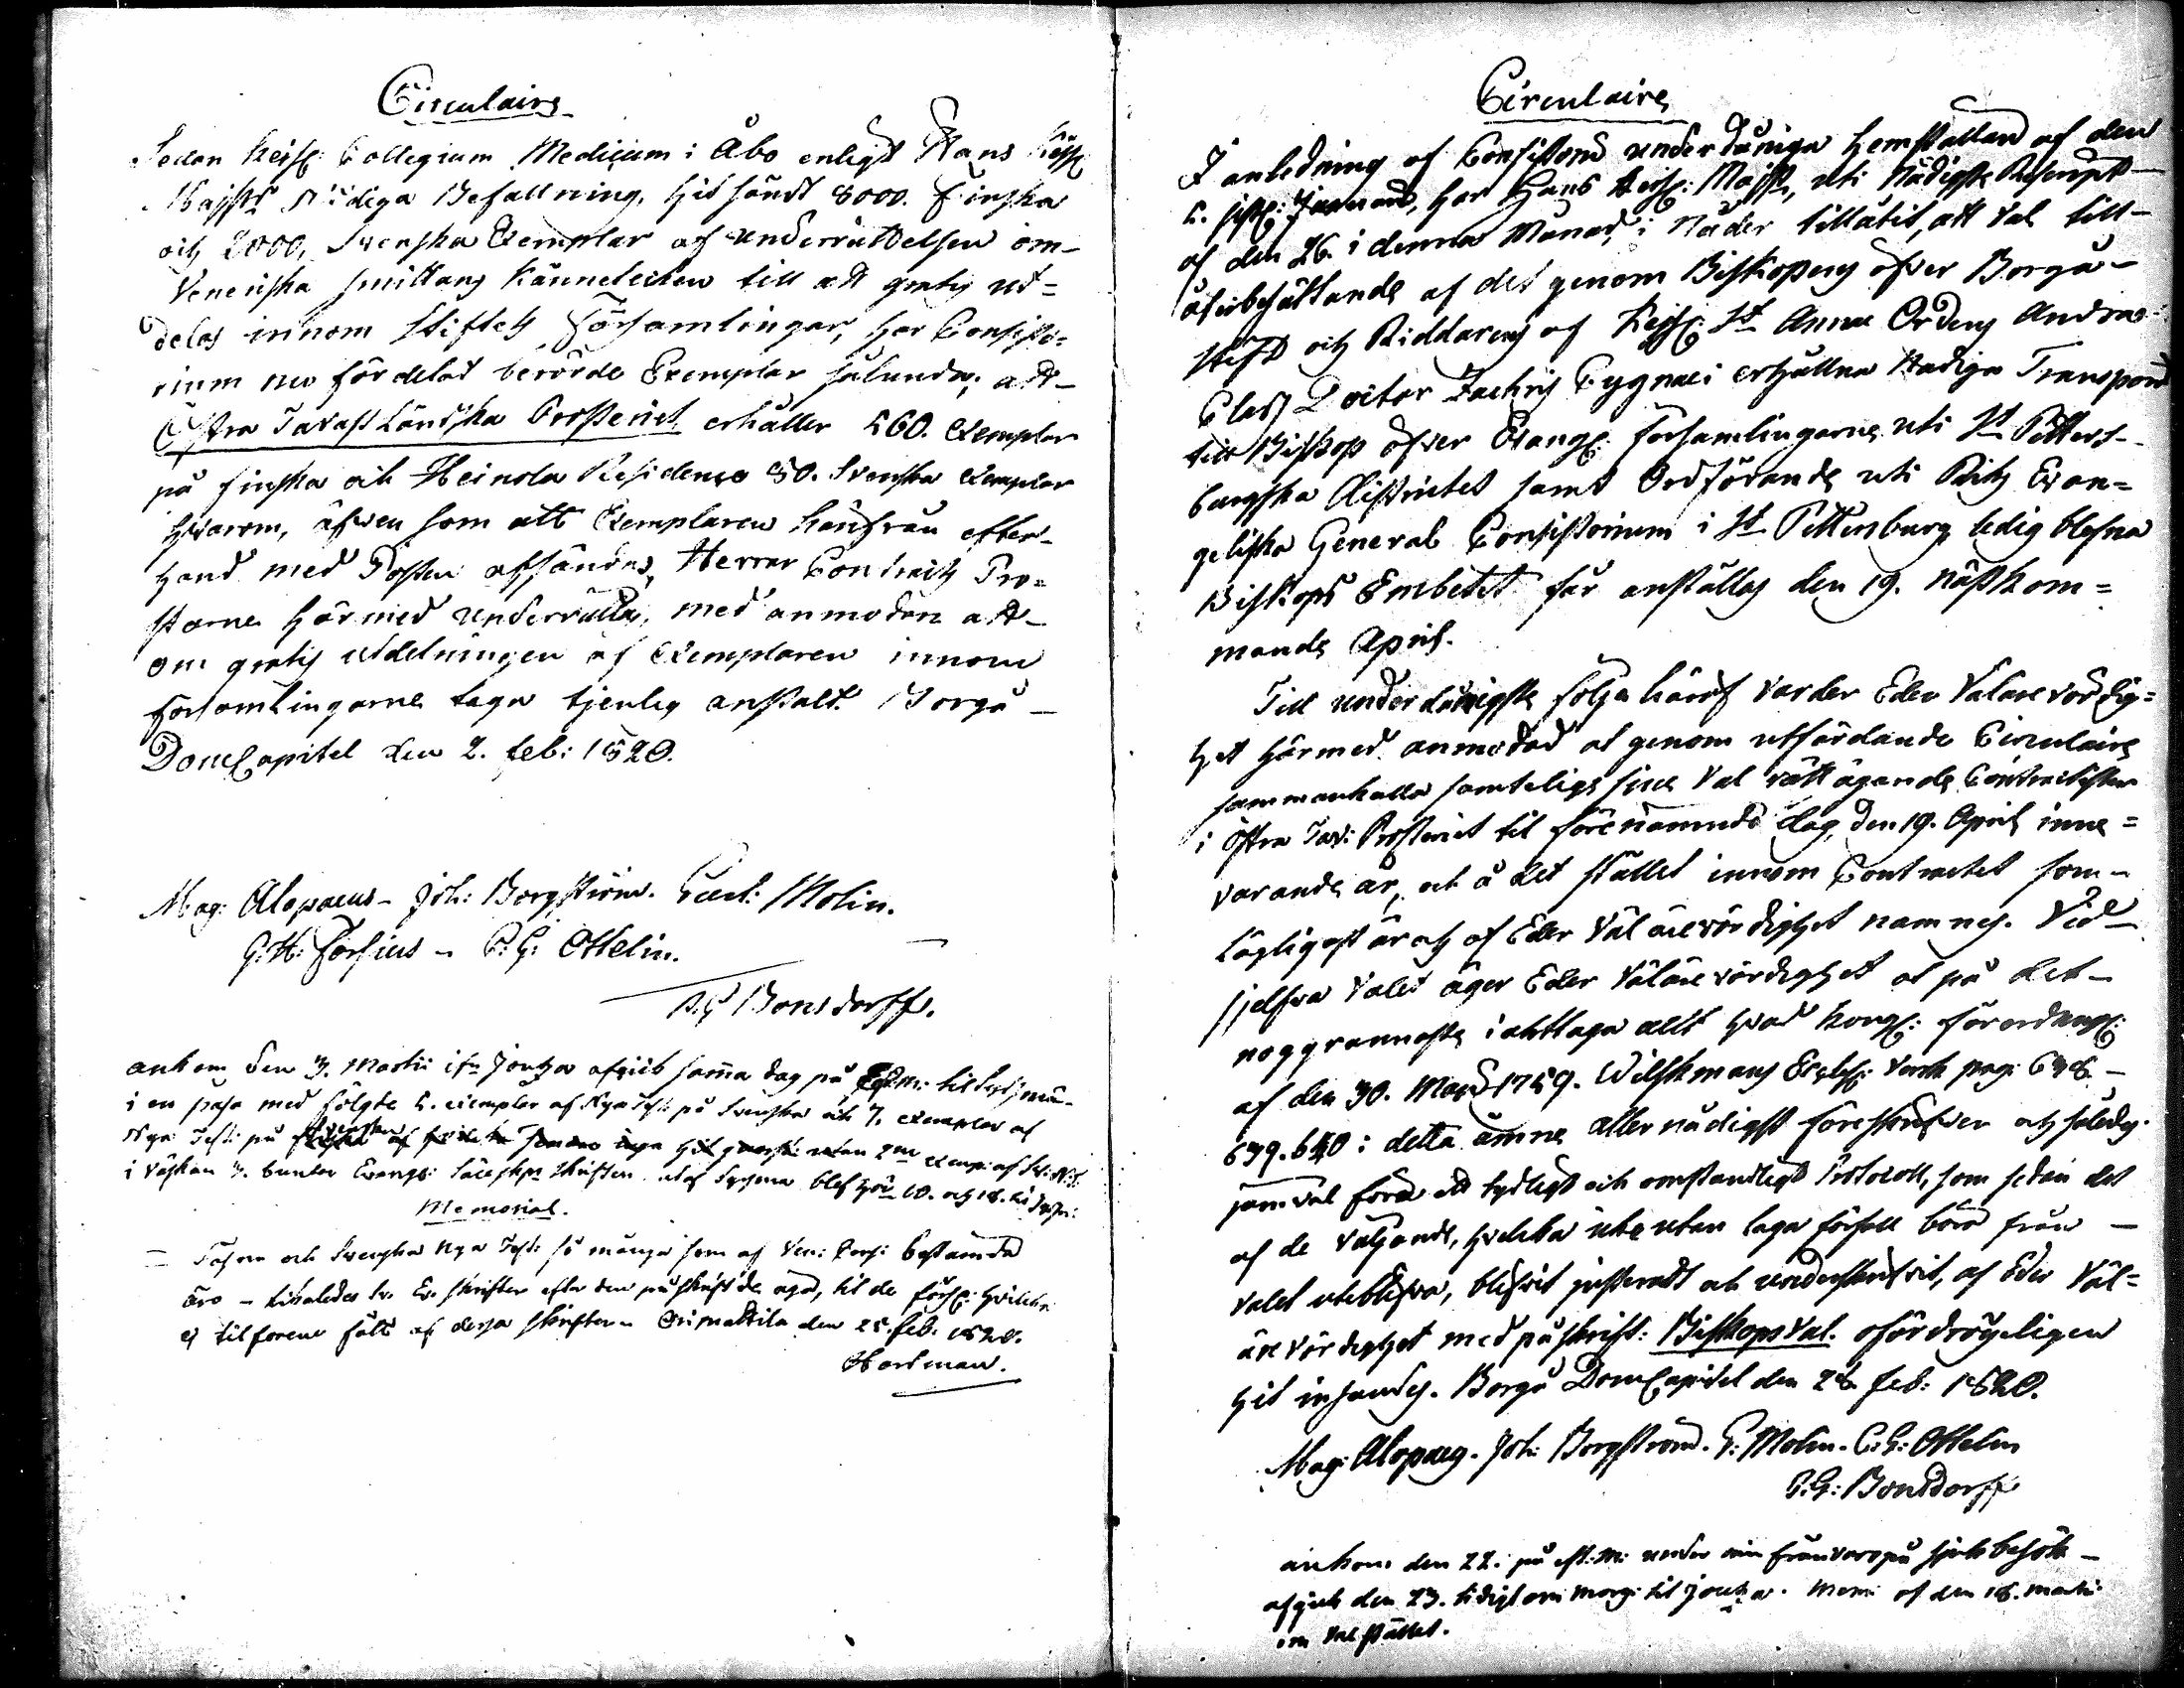 Circulaire
Sedan Kejserl: Collegium Medicum i Åbo enligt Hans Kejserl:
Majsts Nådiga Befallning, hit sändt 8000. Finska
och 2000, Svenska Exemplar af underrättelsen om
Veneriska smittans Känneteken till att gratis ut=
delas innom Stiftets Församlingar, har Consisto=
rium nu fördelat berörde Exemplar sålunda; att
Östra Tavastländska Prosteriet erhåller 560. Exemplar
på finska och Heinola Residence 50. Svenska Exemplar
hvarom, äfven som att Exemplaren härifrån efter-
hand med Posten afsändas, Herrar Contracts Pro=
starne härmed underrättas, med anmodan att
om gratis utdelningen af Exemplaren innom
Församlingarne taga tjenlig anstalt. Borgå
DomCapitel den 2. Feb: 1820.
Mag: Alopaeus - Joh: Borgström. Gust: Molin.
G. H: Forsius - C: G: Ottelin.
C. G Bonsdorff.
ankom den 3. Martii ifn Joutza afgick samma dag på Eft.m: til
i en påse med följde 5. exemplar af Nya Test: på Svenska och 7. exemplar af
Nya Test: på utan exemp: af
i Väskan 3. buntar Evang: Sällskps Skriften blef
Memorial.
Finska och Svenska Nya Test: så många som af Ven: Cons: bestämda
äro - tilsändes Ev. Skrifter efter den påskrift de äga, til de förs: hvilka
ej tilförene fått af dessa skrifter. Orimattila den 25. Feb. 1820.
Hartman.
Circulaire
I anledning af Consistorii underdåniga hemställan af den
5. sistl: Januarii, har Hans Kejserl: Majst, uti Nådigste Rescript
af den 26. i denna Månad, i Nåder tillåtit, att Val till
återbesättande af det genom Biskopens öfver Borgå
Stift och Riddarens af Kejserl: St Annæ Ordens Andra
Class Doctor Zachris Cygnaei erhållna Nådiga Transport
till Biskop öfver Evangl: församlingarne uti St Petters-
burgska Districtet samt Ordförande uti Riks Evan=
geliska General Consistorium i St Pettersburg ledig blefna
Biskops Embetet får anställas den 19. nästkom=
mande April.
Till underdånigste följe häraf varder Eder Välärevördig=
het härmed anmodad at genom utfärdande Circulaire
sammankalla samtelige sine Val rättägande Contractister
i Östra Tav: Prosteriet til förenämnde dag, den 19. April inne=
varande år, och å det stället innom Contractet som
lägligast är och af Eder Välärevördighet namnes. Vid
sjelfva Valet äger Eder Välärevördighet at på det
noggrannaste iakttaga allt hvad Kongl: förordning:
af den 30. Maji 1759. Wilskmans Eccles: Verk pag: 638
639. 640 i detta ämne allernådigst föreskrifver och således
jämväl föra ett tydligt och omständligt Protocoll, som sedan det
af de väljande, hvilka icke utan laga förfall böra från
valet uteblifva, blifvit justeradt och underskrifvit, af Eder Väl=
ärevördighet med påskrift: Biskopsval. ofördröjeligen
hit insändes. Borgå DomCapitel den 28 Feb: 1820.
Mag: Alopaeus. Joh: Borgström. G: Molin. C: G: Ottelin
C. G: Bonsdorff
ankom den 22. på eft.m: under min frånvaro på sjukbesök
afgick den 23. tidigt om morg: til Joutza. Mem: af den 18. Martii
om Valstället.